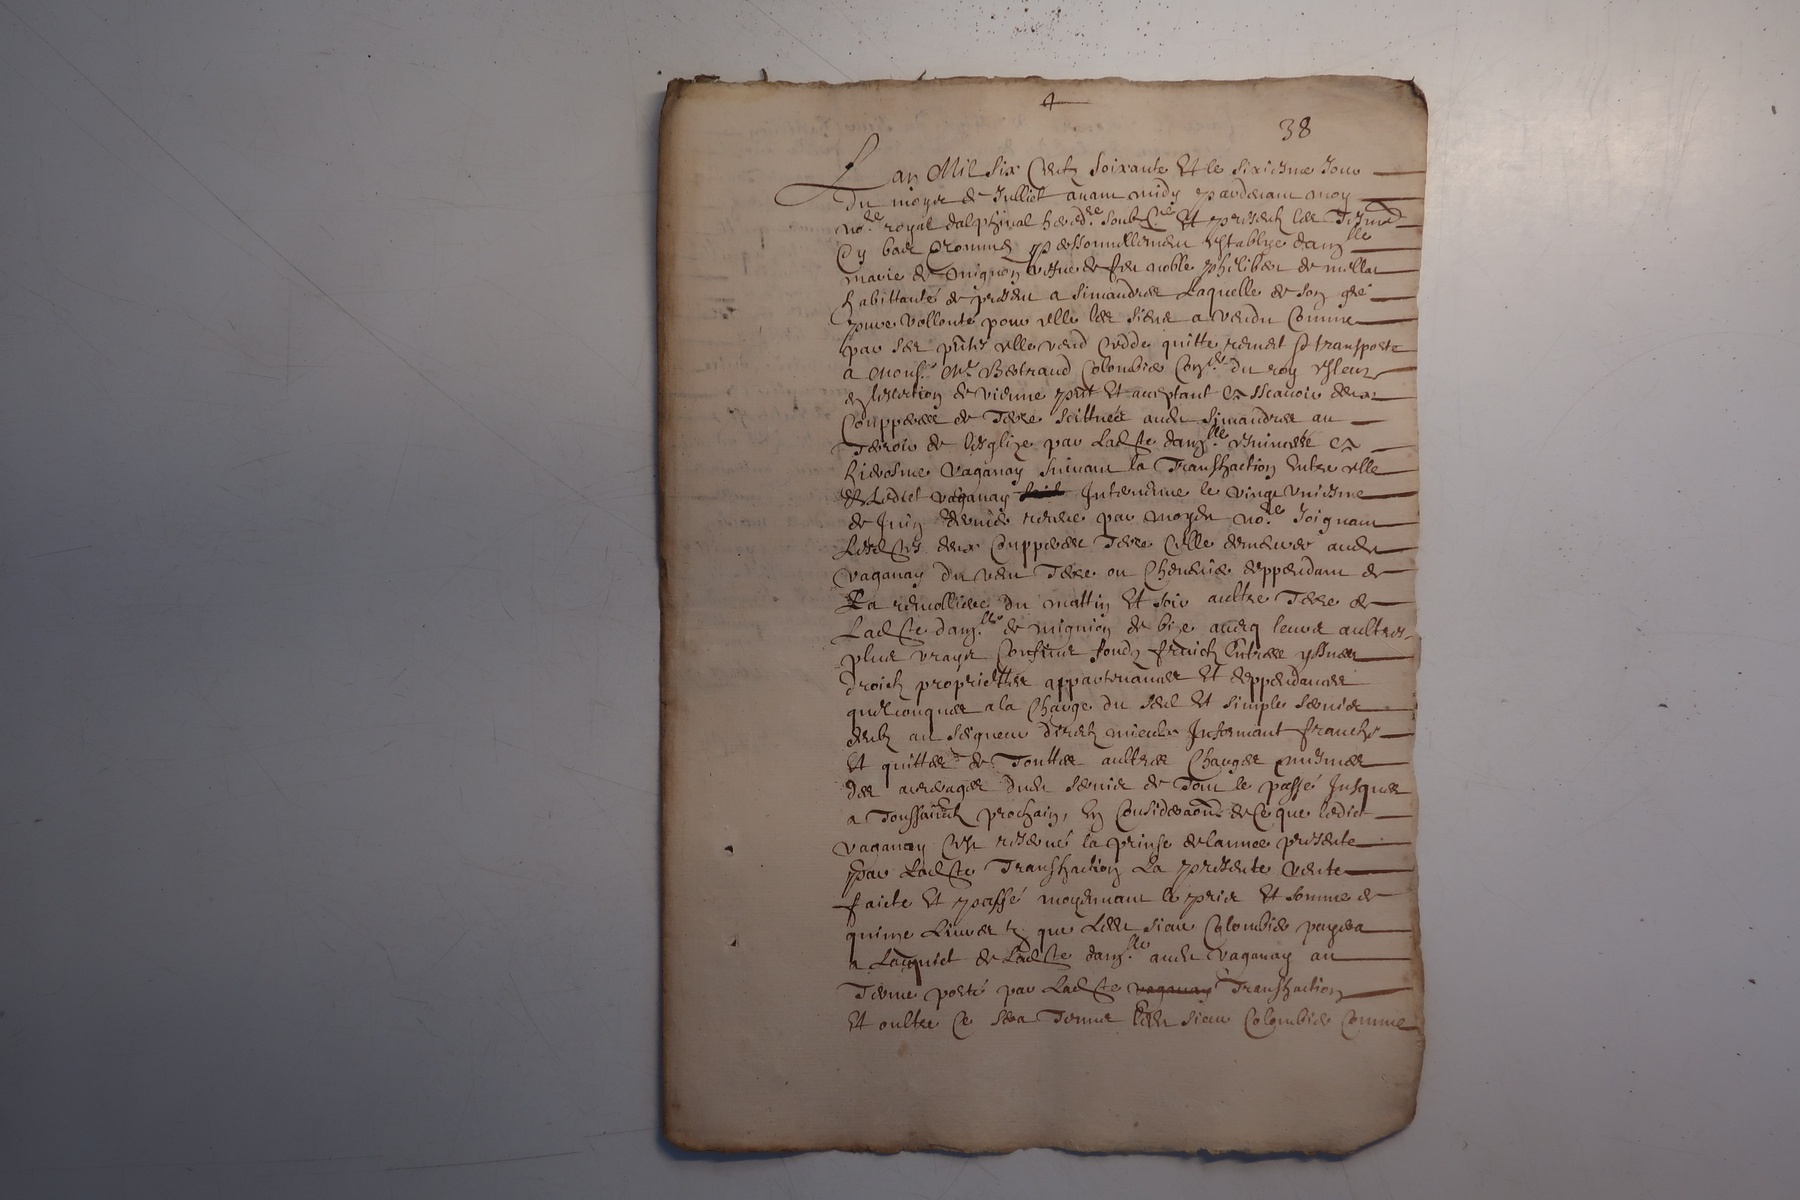 38
Lan Mil six Centz soixante Et le sixiesme Jour
Du moys de Julliet avant midy pardevant moy
no.re royal dalphinal hered.re soubz.né Et presentz les Tesmoi
Cy bas nommez personnellement Establye dam.lle
marie de mignon vefve de feu noble philibert de
habittante de present a simandres Laquelle de son gré
pure vollonté pour elle les siens a vendu Comme
par ses pntes elle vend cedde quitte remet et transporte
a Mons.r M.e Bertrand Colombier Con.er du roy Esleu
en lelection de vienne pnt Et acceptant Scavoir deux
Couppees de Terre scittuée aud simandres au
Terroir de lesglize par Ladte dam.lle
hierosme Vaganay suivant la Transhaction Entre elle
Et Ledict vaganay Intervenue le vingt uniesme
de Juin dernier receue par moydt no.re Joignant
Lesdtes deux Couppees Terre Celle demeuree audt
vaganay du vent Terre ou Cheneviere deppendant de
La du mattin Et soir aultre Terre de
Ladte dam.lle de mignion de bize avecq leurs aultres
plus vrays Confins fondz fruictz Entrees yssues
droictz proprietés appartenances Et deppendances
quelconques a la Charge du seul Et simple service
deub au seigneur direct Infermant franche
Et quitte de Touttes aultres Charges mesmes
des arreages dudt service de Tout le passé Jusques
a Toussainctz prochain, En Consideraon de Ce que ledict
vaganay sest reservé la prinse de lannee presente
par Ladte Transhaction La presente vente
faicte Et passé moyennant le prix Et somme de
quinze Livres tz que Ledt sieur Colombier payera
a Lacquict de Ladte dam.lle audt vaganay au
Terme porté par Ladte vaganay Transhaction
Et oultre Ce sera Tenu Ledt sieur Colombier Comme